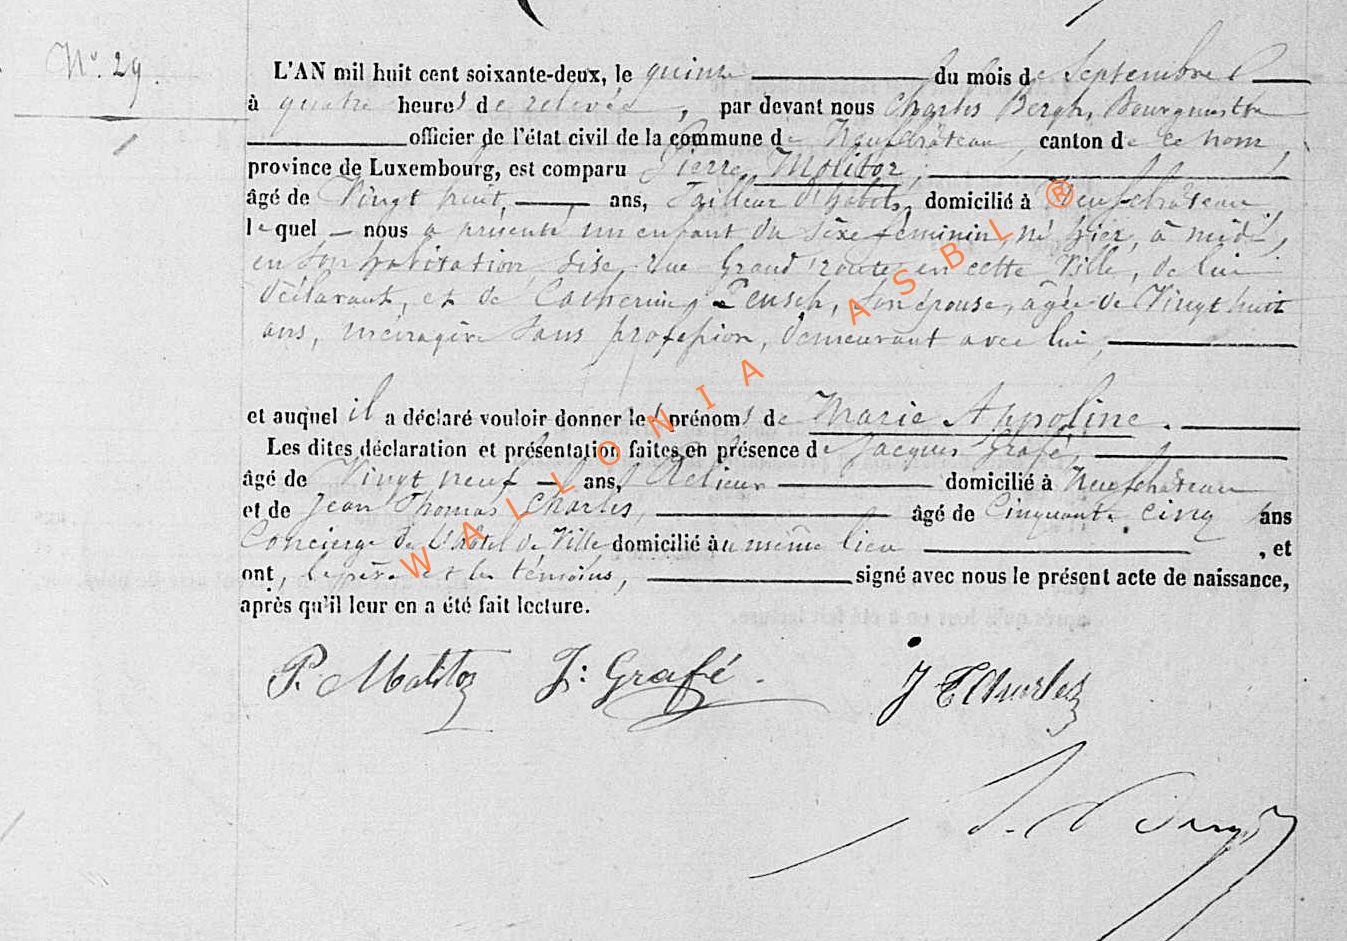 N°. 29.
L'AN mil huit cent soixante-deux, le quinze du mois de Septembre
à quatre heures de relevée, par devant nous Charles Bergh, Bourgmestre
officier de l'état civil de la commune de Neufchâteau canton de ce nom
province de Luxembourg, est comparu Pierre Molitor,
âgé de Vingt huit, ans, Tailleur d'habits, domicilié à Neufchâteau,
lequel nous a présenté un enfant du sexe féminin, né hier, à midi,
en son habitation sise, rue Grand'route, en cette Ville, de lui
déclarant, et de Catherine Pensch, son épouse, âgée de Vingt huit
ans, ménagère sans profession, demeurant avec lui,
et auquel il a déclaré vouloir donner les prénoms de Marie Appoline.
Les dites déclaration et présentation faites en présence de Jacques Grafé,
âgé de Vingt neuf ans, Relieur domicilié à Neufchâteau
et de Jean Thomas Charles, âgé de Cinquante cinq ans
Concierge de l'hôtel de Ville domicilié au même lieu , et
ont, le père et les témoins, signé avec nous le présent acte de naissance,
après qu'il leur en a été fait lecture.
P. Molitor J: Grafé. J T Charles
WALLONIA ASBL ®